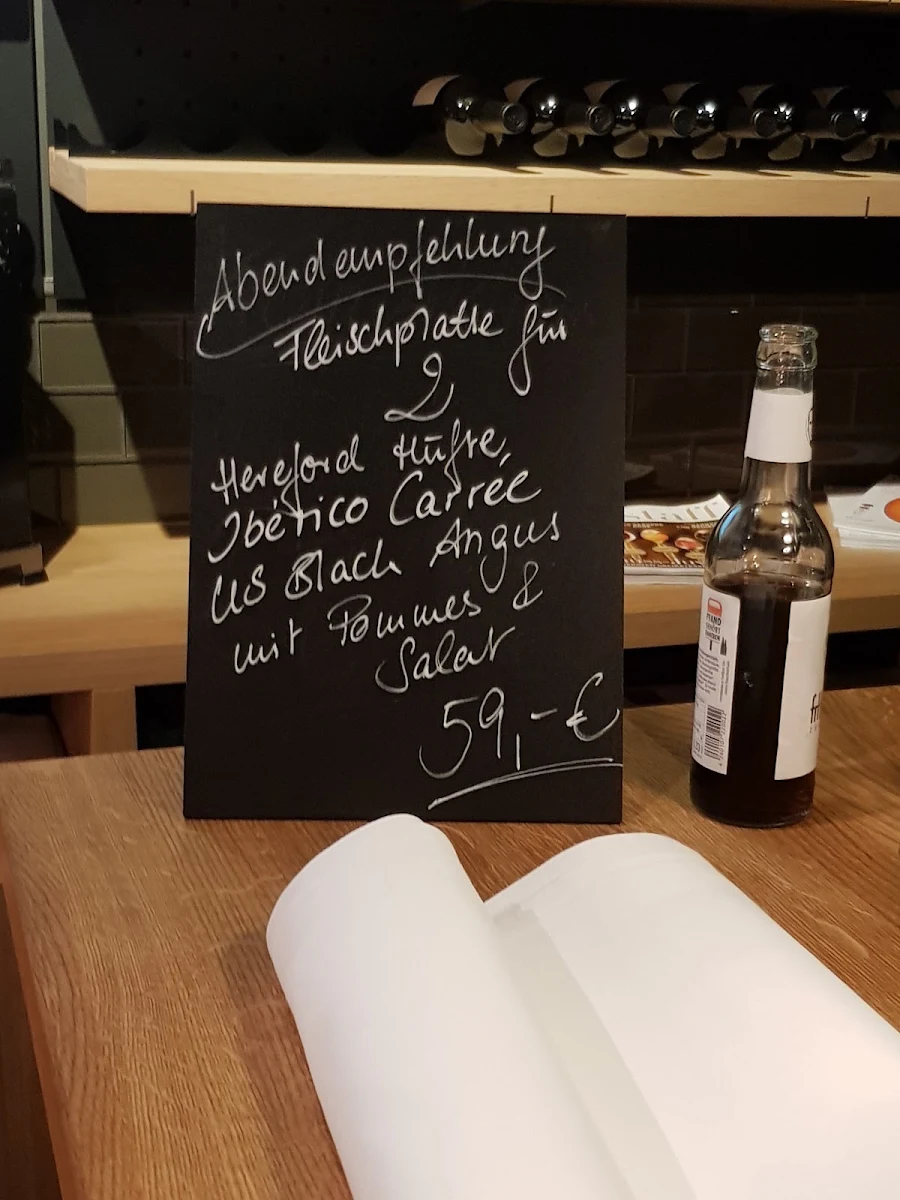 Abendempfehlung
Fleischplatte für
2
Hereford Hüfte,
Ibérico Carrée
US Black Angus
mit Pommes &
Salat
59,- €
PFAND